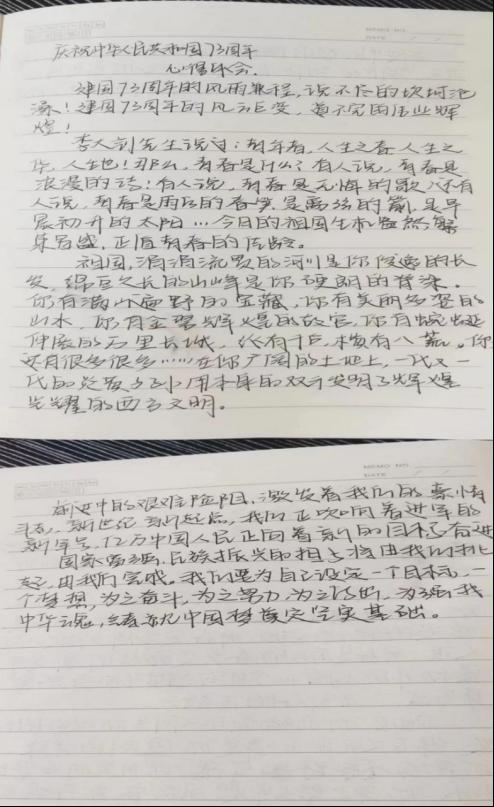 MEMO NO.
DATE / /
庆祝中华人民共和国73周年
心得体会.
建国73周年的风雨兼程,说不尽的坎坷泥
泞!建国73周年的风云巨变,道不完的伟业辉
煌!
李大钊先生说过:青年者,人生之春,人生之
华,人生也!那么,青春是什么?有人说,青春是
浪漫的诗;有人说,青春是无悔的歌;还有
人说,青春是雨后的春笋,是离弦的箭,是早
晨初升的太阳…今日的祖国生机盎然繁
荣富强,正值青春的年龄。
祖国,涓涓流股的河川是你飘逸的长
发,绵亘久长的山峰是你硬朗的脊梁.
你有满山遍野的宝藏,你有美丽多姿的
山水,你有金碧辉煌的故宫,你有蜿蜒
伸展的万里长城,你有十月,梅有八荒。你
还有很多很多……在你广阔的土地上,一代又一
代的炎黄子孙用自身的双手发明了辉煌
光耀的四方文明。
MEMO NO.
DATE / /
前进中的艰难险阻,激发着我们的豪情
斗志.新世纪新起点,我们正吹响着进军的
新军号,12万中国人民正向着新的目标奋进
国家富强,民族振兴的担子将由我们挑
起,由我们完成。我们要为自己设定一个目标,一
个梦想,为之奋斗,为之努力,为之,为强我
中华之魂,实现中国梦奠定坚实基础。